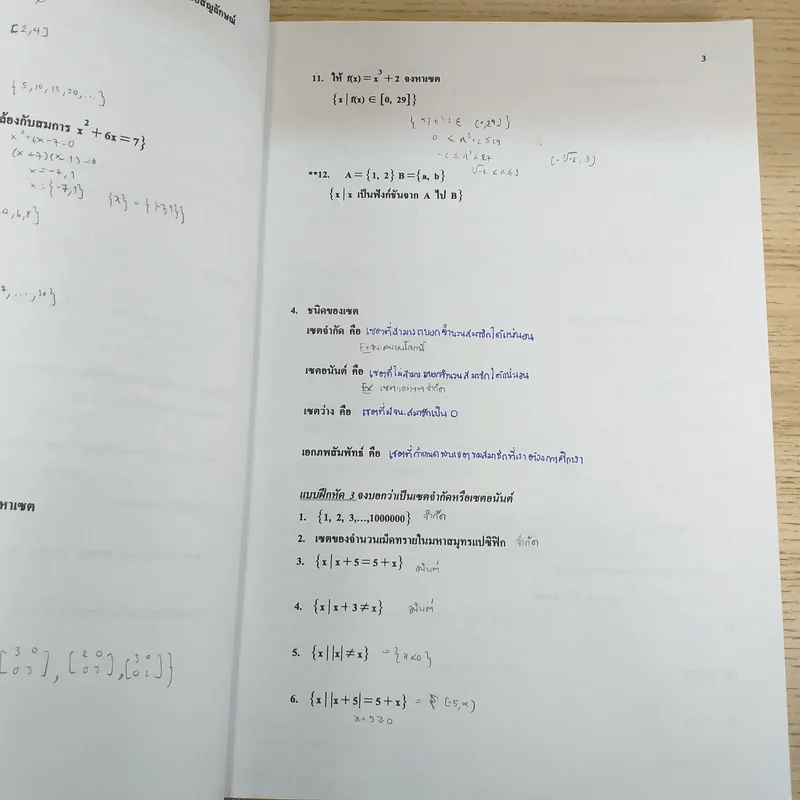 [2,4]
{5,10,15,20,...}
ล้องกับสมการ x² + 6x = 7}
x²+6x-7=0
(x+7)(x-1)=0
x=-7,1
x={-7,1} {x} = {-7,1}}
4,6,8}
7,...,30}
หาเซต
[3 0
0 3], [2 0
0 3], [3 0
0 2]}
3
11. ให้ f(x) = x³ + 2 จงหาเซต
{x | f(x) ∈ [0, 29]}
∈ [0,29]}
0 ≤ x³+2 ≤ 29
-2 ≤ x³ ≤ 27
**12. A = {1, 2} B = {a, b}
{x | x เป็นฟังก์ชันจาก A ไป B}
4. ชนิดของเซต
เซตจำกัด คือ เซตที่สามารถบอกจำนวนสมาชิกได้แน่นอน
Ex จน.คนบนโลกนี้
เซตอนันต์ คือ เซตที่ไม่สามารถบอกจำนวนสมาชิกได้แน่นอน
Ex
เซตว่าง คือ เซตที่มีจน.สมาชิกเป็น 0
เอกภพสัมพัทธ์ คือ เซตที่กำหนดขอบเขตของสมาชิกที่เราต้องการศึกษา
แบบฝึกหัด 3 จงบอกว่าเป็นเซตจำกัดหรือเซตอนันต์
1. {1, 2, 3,...,1000000} จำกัด
2. เซตของจำนวนเม็ดทรายในมหาสมุทรแปซิฟิก จำกัด
3. {x | x + 5 = 5 + x} อนันต์
4. {x | x + 3 ≠ x} อนันต์
5. {x | |x| ≠ x} = {x<0}
6. {x | |x + 5| = 5 + x} = [-5,∝)
x+5 ≥ 0